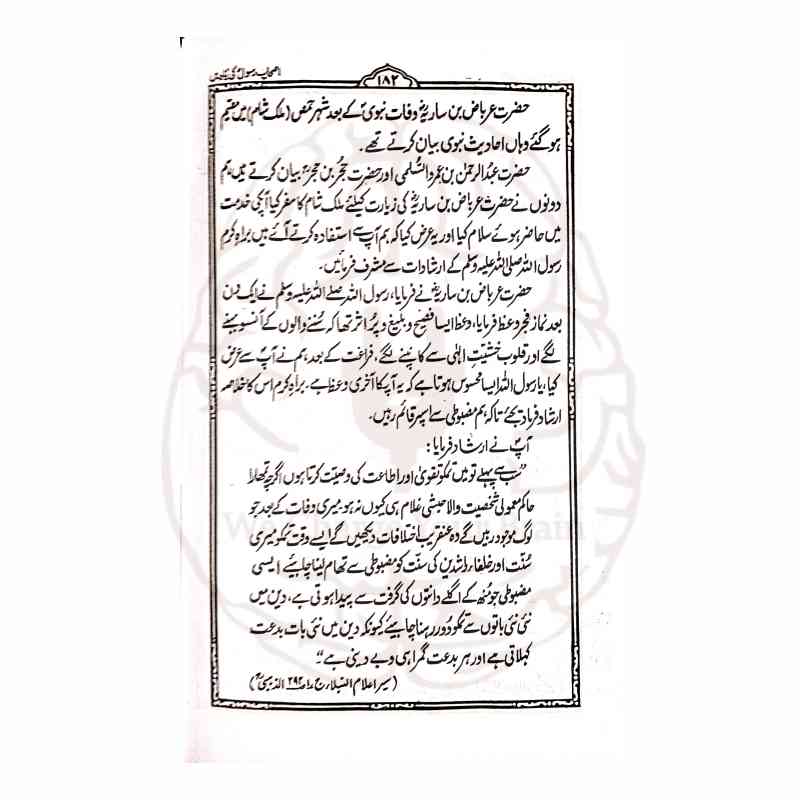 اصحاب رسول کی یادیں
۱۸۲
حضرت عرباض بن ساریہؓ وفات نبوی کے بعد شہر حمص (ملک شام) میں مقیم
ہو گئے وہاں احادیث نبوی بیان کرتے تھے۔
حضرت عبدالرحمٰن بن عمرو السُّلمی اور حضرت حُجر بن حُجرؒ بیان کرتے ہیں ہم
دونوں نے حضرت عرباض بن ساریہؓ کی زیارت کیلئے ملک شام کا سفر کیا آپکی خدمت
میں حاضر ہوئے سلام کیا اور یہ عرض کیا کہ ہم آپ سے استفادہ کرتے آئے ہیں براہِ کرم
رسول اللہ صلی اللہ علیہ وسلم کے ارشادات سے مشرف فرمائیں۔
حضرت عرباض بن ساریہؓ نے فرمایا، رسول اللہ صلے اللہ علیہ وسلم نے ایک دن
بعد نماز فجر وعظ فرمایا، وعظ ایسا فصیح و بلیغ و پُر اثر تھا کہ سُننے والوں کے آنسو بہنے
لگے اور قلوب خشیّتِ الٰہی سے کانپنے لگے، فراغت کے بعد ہم نے آپؐ سے عرض
کیا، یا رسول اللہ ایسا محسوس ہوتا ہے کہ یہ آپ کا آخری وعظ ہے۔ براہِ کرم اس کا خلاصہ
ارشاد فرما دیجئے تاکہ ہم مضبوطی سے اسپر قائم رہیں۔
آپؐ نے ارشاد فرمایا:
"سب سے پہلے تو میں تمکو تقویٰ اور اطاعت کی وصیّت کرتا ہوں اگرچہ تمھارا
حاکم معمولی شخصیت والا حبشی غلام ہی کیوں نہ ہو میری وفات کے بعد جو
لوگ موجود رہیں گے وہ عنقریب اختلافات دیکھیں گے ایسے وقت تمکو میری
سُنّت اور خلفاء راشدین کی سنّت کو مضبوطی سے تھام لینا چاہیئے ایسی
مضبوطی جو مُنھ کے اگلے دانتوں کی گرفت سے پیدا ہوتی ہے، دین میں
نئی نئی باتوں سے تمکو دور رہنا چاہیئے کیونکہ دین میں نئی بات بدعت
کہلاتی ہے اور ہر بدعت گمراہی و بے دینی ہے"۔
(سیر اعلام النبلاء ج ۲۹۲ الذہبیؒ)